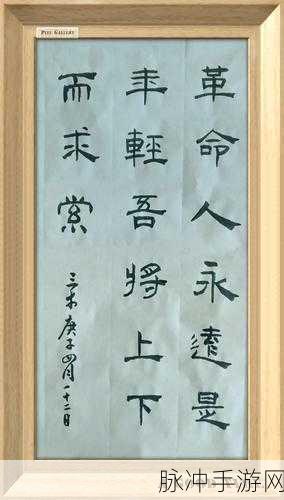 PIXS GALLERY
革命人永遠是
年輕吾將上下
而求索
三木庚子四月十二日
脉冲手游网